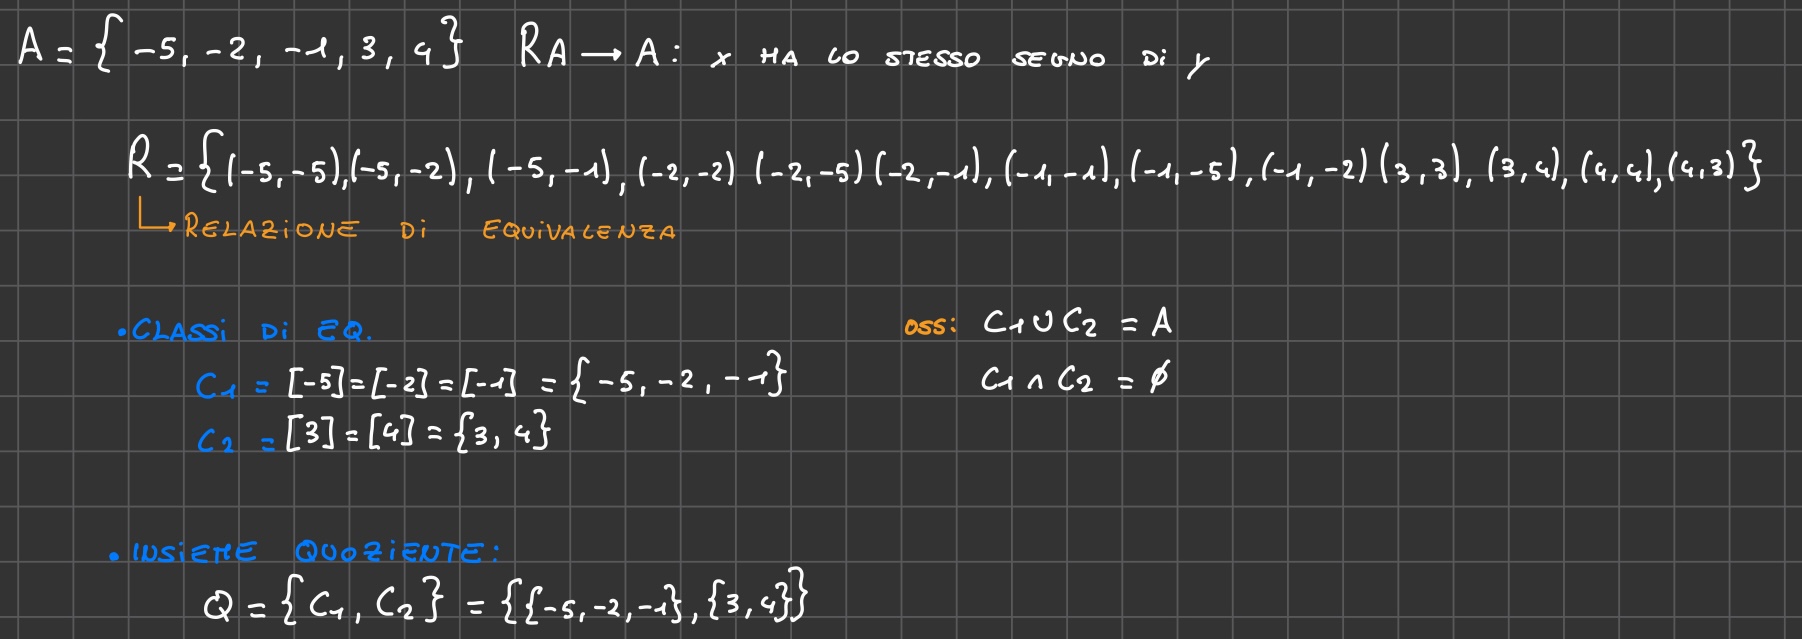 A = { -5, -2, -1, 3, 4 } R A → A : x HA LO STESSO SEGNO Di y
R = { (-5, -5), (-5, -2), (-5, -1), (-2, -2) (-2, -5) (-2, -1), (-1, -1), (-1, -5), (-1, -2) (3, 3), (3, 4), (4, 4), (4, 3) }
↳ RELAZiONE Di EQUiVALENZA
• CLASSi Di EQ.
C1 = [-5] = [-2] = [-1] = { -5, -2, -1 }
C2 = [3] = [4] = { 3, 4 }
oss: C1 ∪ C2 = A
C1 ∩ C2 = ∅
• INSiEME QUOZiENTE:
Q = { C1, C2 } = { {-5, -2, -1}, {3, 4} }